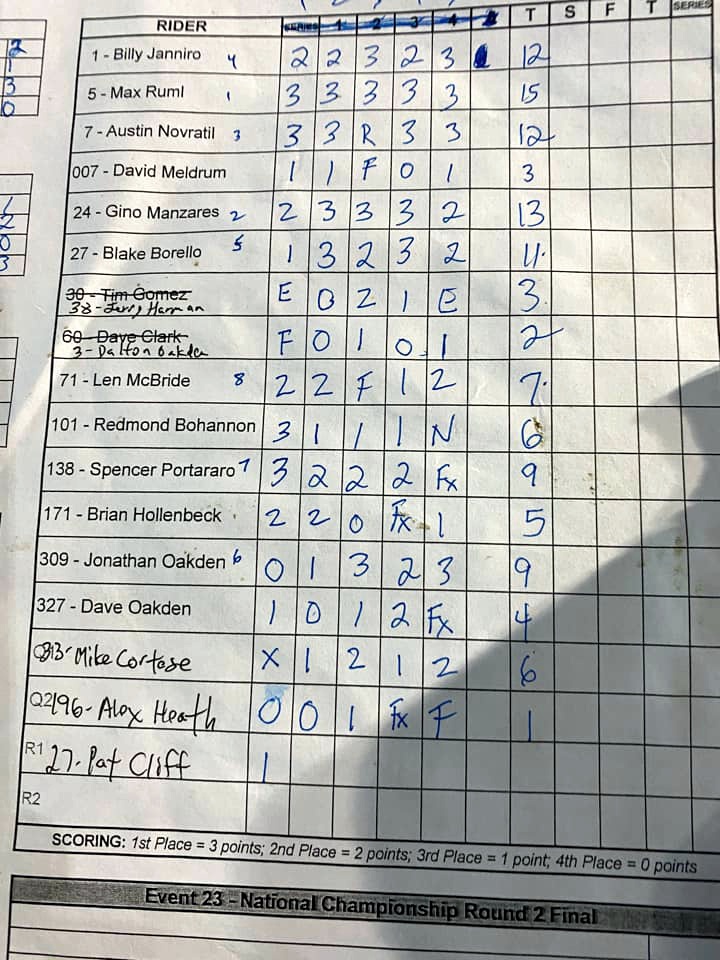 RIDER SERIES 1 2 3 4 T S F T SERIES
2
1 - Billy Janniro 4 2 2 3 2 3 12
1
5 - Max Ruml 1 3 3 3 3 3 15
3
7 - Austin Novratil 3 3 3 R 3 3 12
0
007 - David Meldrum 1 1 F 0 1 3
1
24 - Gino Manzares 2 2 3 3 3 2 13
2
27 - Blake Borello 5 1 3 2 3 2 11.
0
3
30 - Tim Gomez
38 - Jerry Harman E 0 2 1 E 3
60 - Dave Clark
3 - Dalton Oakden F 0 1 0 1 2
71 - Len McBride 8 2 2 F 1 2 7.
101 - Redmond Bohannon 3 1 1 1 N 6
138 - Spencer Portararo 7 3 2 2 2 Fx 9
171 - Brian Hollenbeck 2 2 0 Fx 1 5
309 - Jonathan Oakden 6 0 1 3 2 3 9
327 - Dave Oakden 1 0 1 2 Fx 4
Mike Cortese X 1 2 1 2 6
Q2 196 - Alex Heath 0 0 1 Fx F 1
R1 27 - Pat Cliff 1
R2
SCORING: 1st Place = 3 points; 2nd Place = 2 points; 3rd Place = 1 point; 4th Place = 0 points
Event 23 - National Championship Round 2 Final